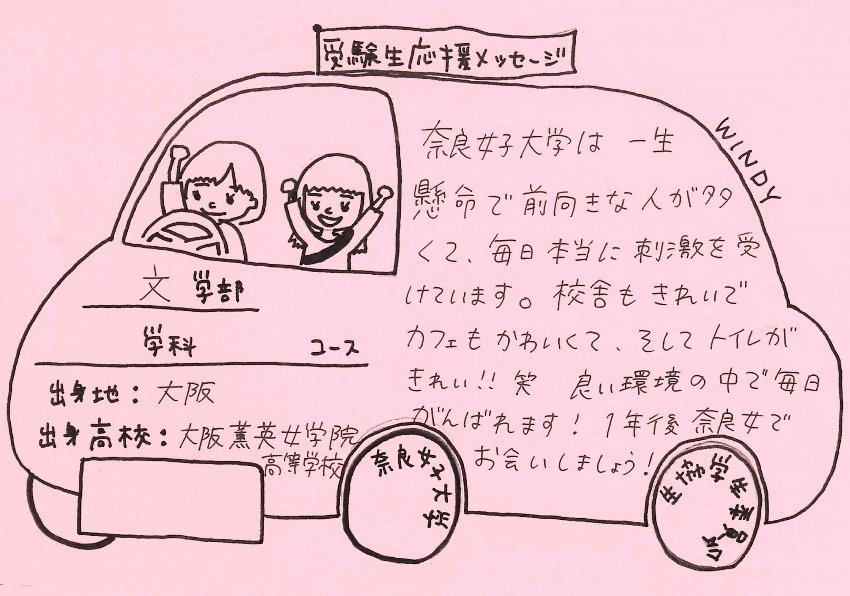 受験生応援メッセージ
WINDY
奈良女子大学は 一生
懸命で前向きな人が多
くて、毎日本当に刺激を受
けています。校舎もきれいで
カフェもかわいくて、そしてトイレが
きれい!! 笑 良い環境の中で毎日
がんばれます! 1年後奈良女で
お会いしましょう!
文 学部
学科 コース
出身地:大阪
出身高校:大阪薫英女学院
高等学校
奈良女子大学
生協学生委員会